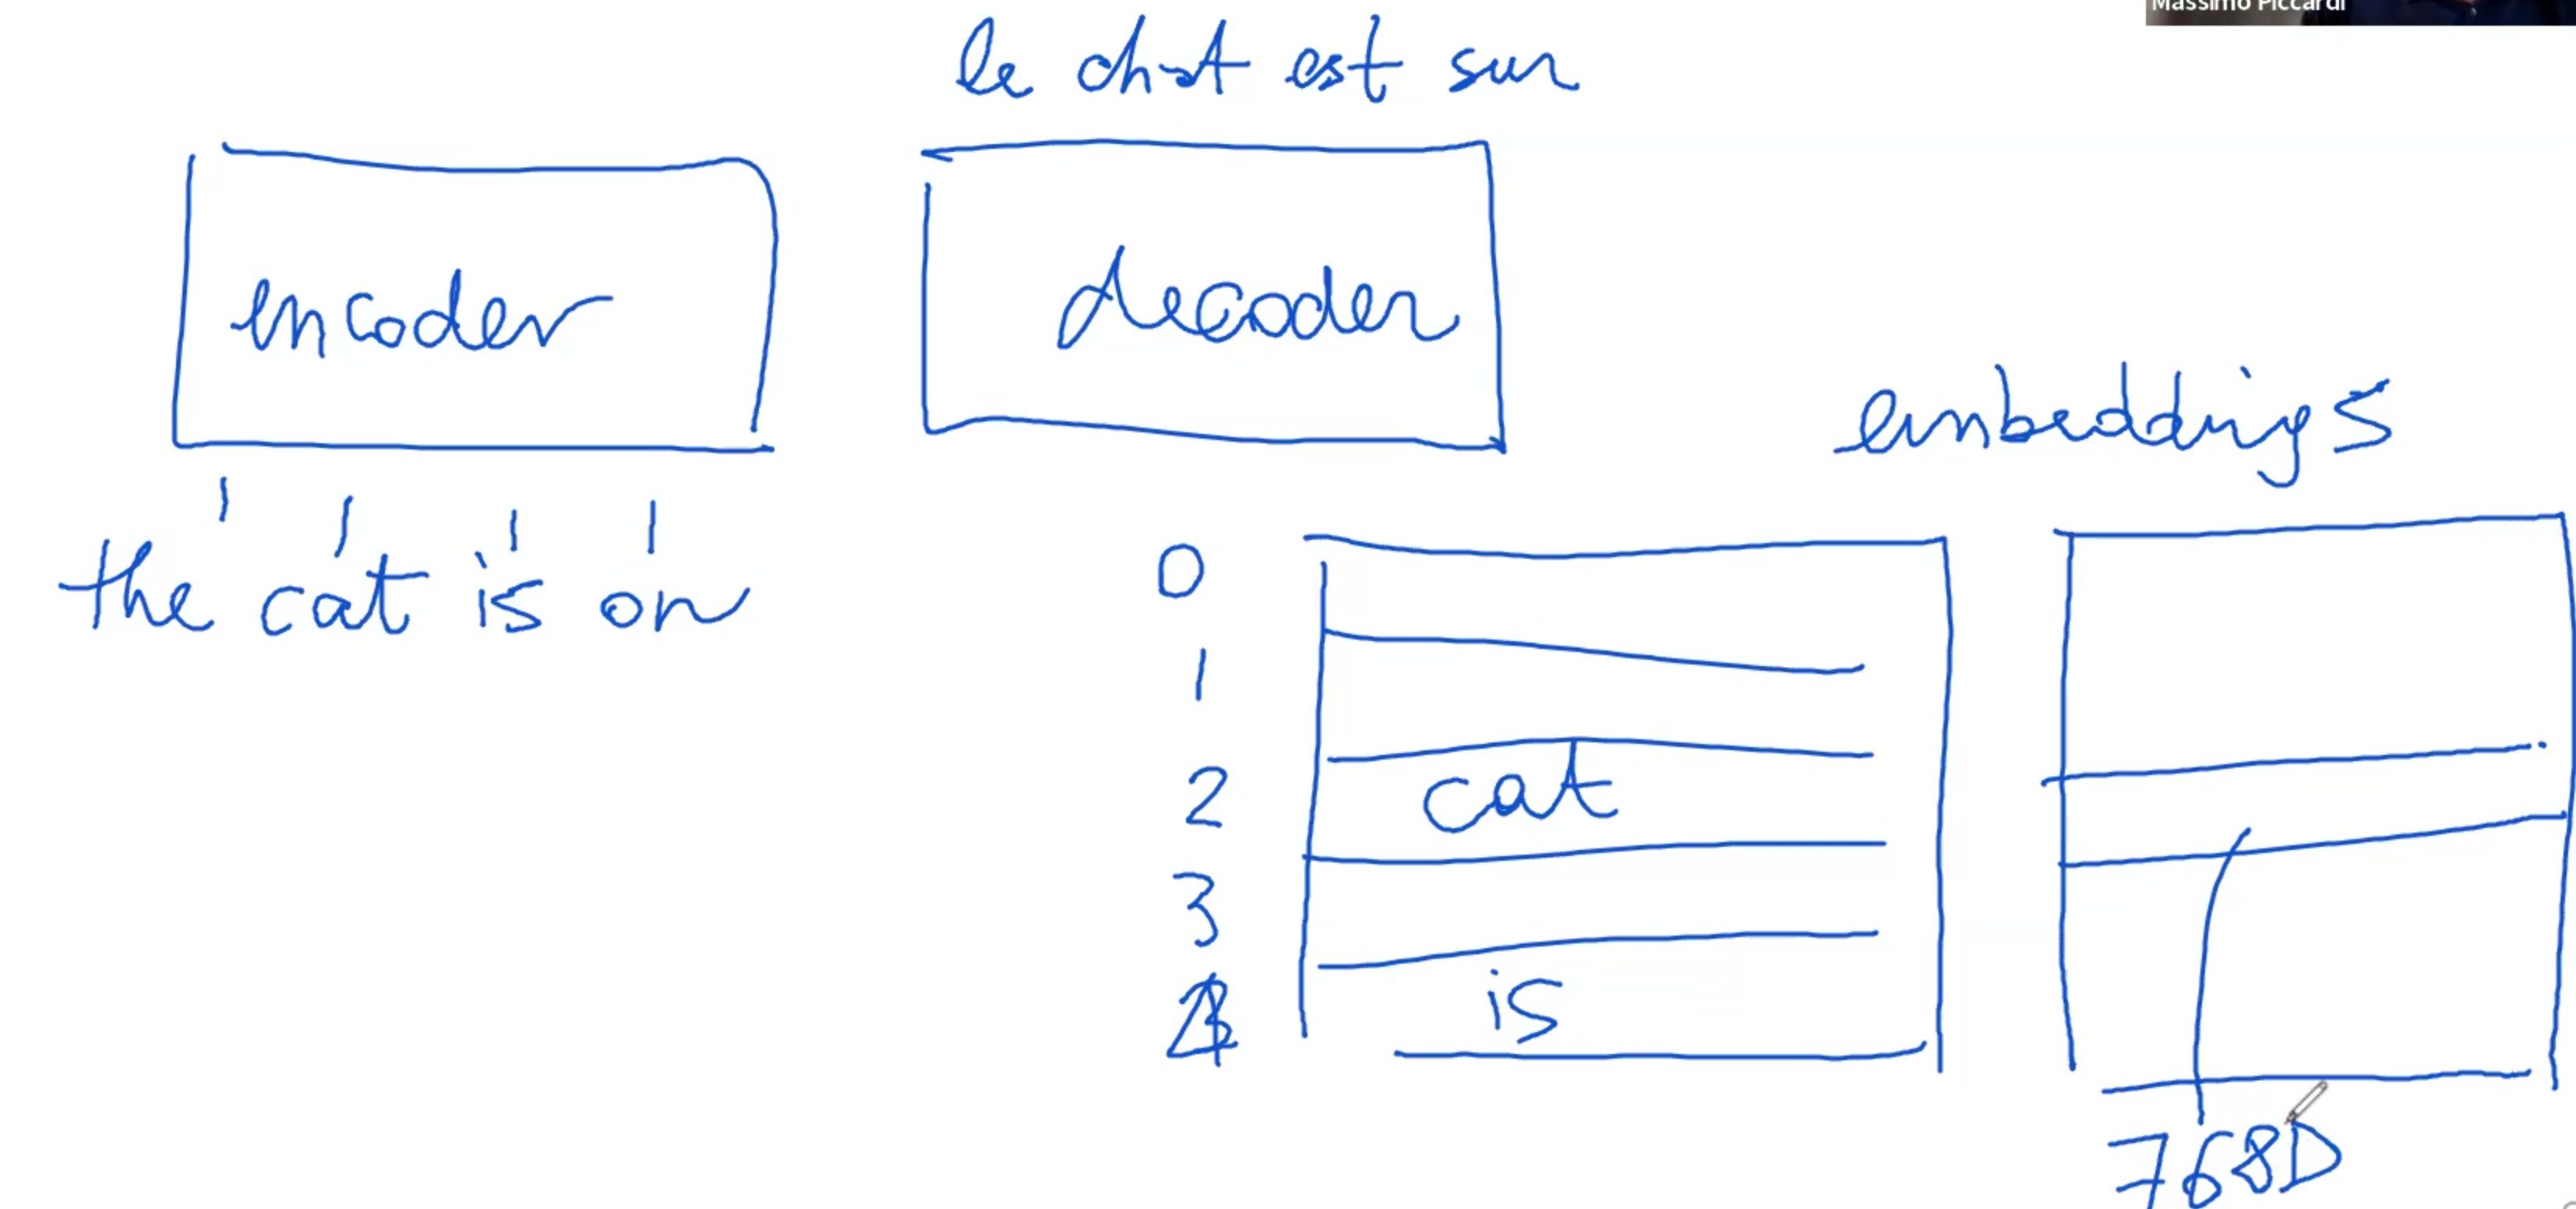 Massimo Piccardi
le chat est sur
encoder
decoder
the cat is on
embeddings
0
1
2 cat
3
is
768D